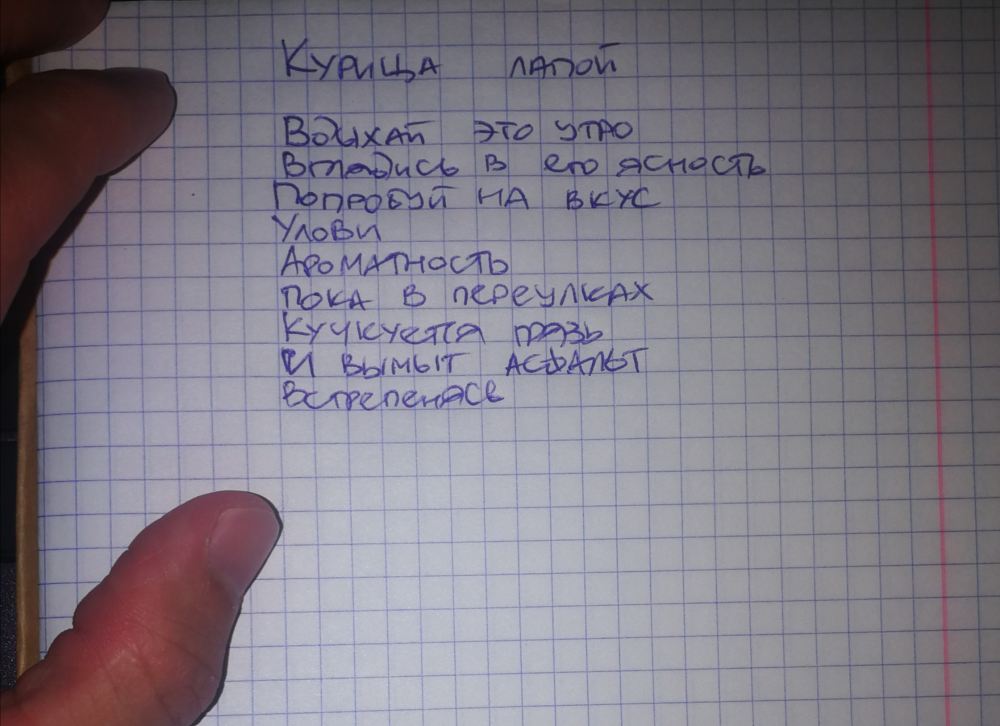 Курица лапой
Вдыхай это утро
Вглядись в его ясность
Попробуй на вкус
Улови
Ароматность
Пока в переулках
Кучкуется грязь
И вымыт асфальт